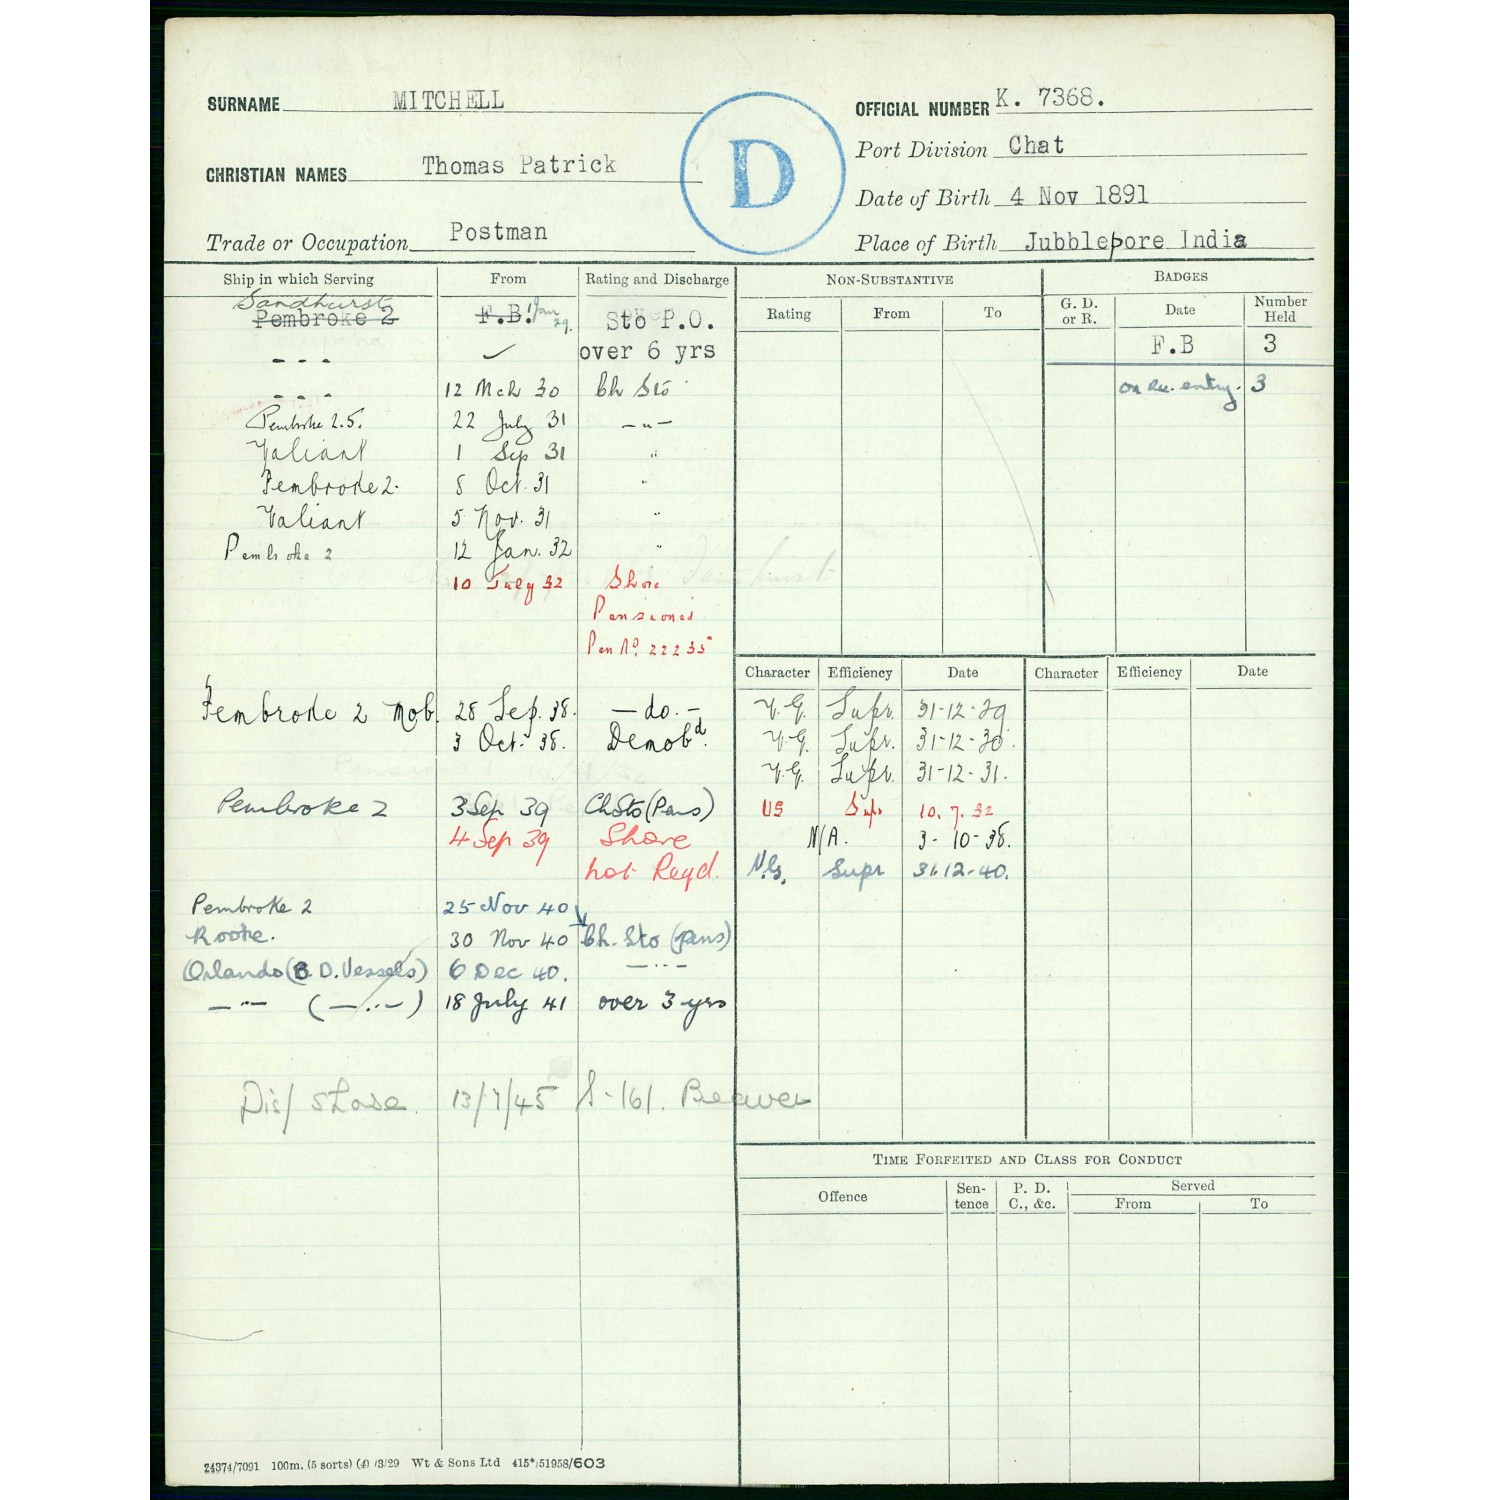 SURNAME MITCHELL
CHRISTIAN NAMES Thomas Patrick
Trade or Occupation Postman
D
OFFICIAL NUMBER K. 7368.
Port Division Chat
Date of Birth 4 Nov 1891
Place of Birth Jubblepore India
Ship in which Serving From Rating and Discharge
Sandhurst
Pembroke 2 F.B. 1 Jan 29. Sto P.O.
- - - ✓ over 6 yrs
- - - 12 Mch 30 Ch Sto
Pembroke 2.5. 22 July 31 — " —
Valiant 1 Sep 31 "
Pembroke 2. 8 Oct. 31 "
Valiant 5 Nov. 31 "
Pembroke 2 12 Jan. 32 "
10 July 32 Shore
Pensioned
Pen No. 22235
Pembroke 2 Mob. 28 Sep. 38. — do. —
3 Oct. 38. Demobd.
Pembroke 2 3 Sep 39 Ch Sto (Pens)
4 Sep 39 Shore
not Reqd.
Pembroke 2 25 Nov 40
Rooke. 30 Nov 40 Ch. Sto (pens)
Orlando (B D. Vessels) 6 Dec 40. — " —
— " — ( — " — ) 18 July 41 over 3 yrs
Dis/ shore. 13/7/45 S-161. Beaver
NON-SUBSTANTIVE
Rating From To
BADGES
G. D. or R. Date Number Held
F.B 3
on Re. entry. 3
Character Efficiency Date Character Efficiency Date
V.G. Supr. 31-12-29
V.G. Supr. 31-12-30.
V.G. Supr. 31-12-31.
VG Supr 10. 7. 32
N/A. 3-10-38.
V.G. Supr 31.12-40.
TIME FORFEITED AND CLASS FOR CONDUCT
Offence Sen-tence P. D. C., &c. Served
From To
24374/7091 100m. (5 sorts) (4) /3/29 Wt & Sons Ltd 415*/51958/603